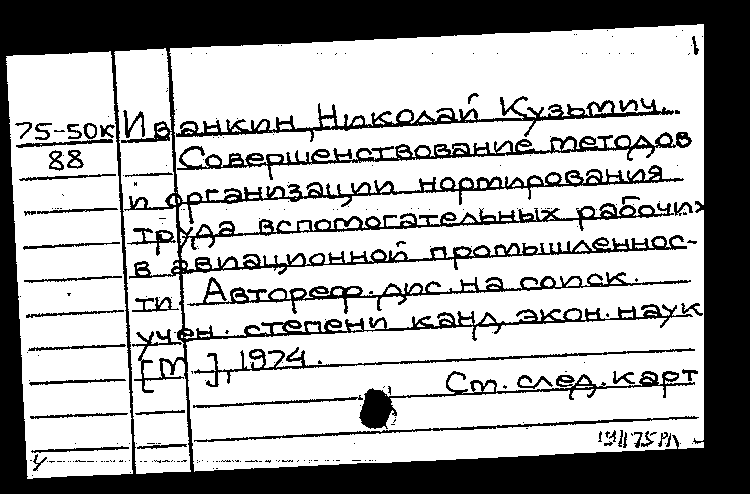 1
75-50к Иванкин, Николай Кузьмич.
88 Совершенствование методов
и организации нормирования
труда вспомогательных рабочих
в авиационной промышленнос-
ти. Автореф. дис. на соиск.
учен. степени канд. экон. наук
[М ], 1974.
См. след. карт
У